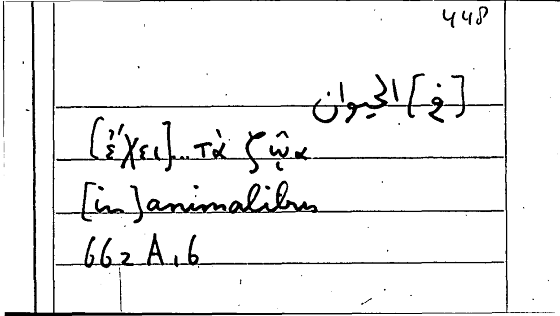 448
[في] الحيوان
[ἔχει]... τὰ ζῷα
[in] animalibus
662 A, 6